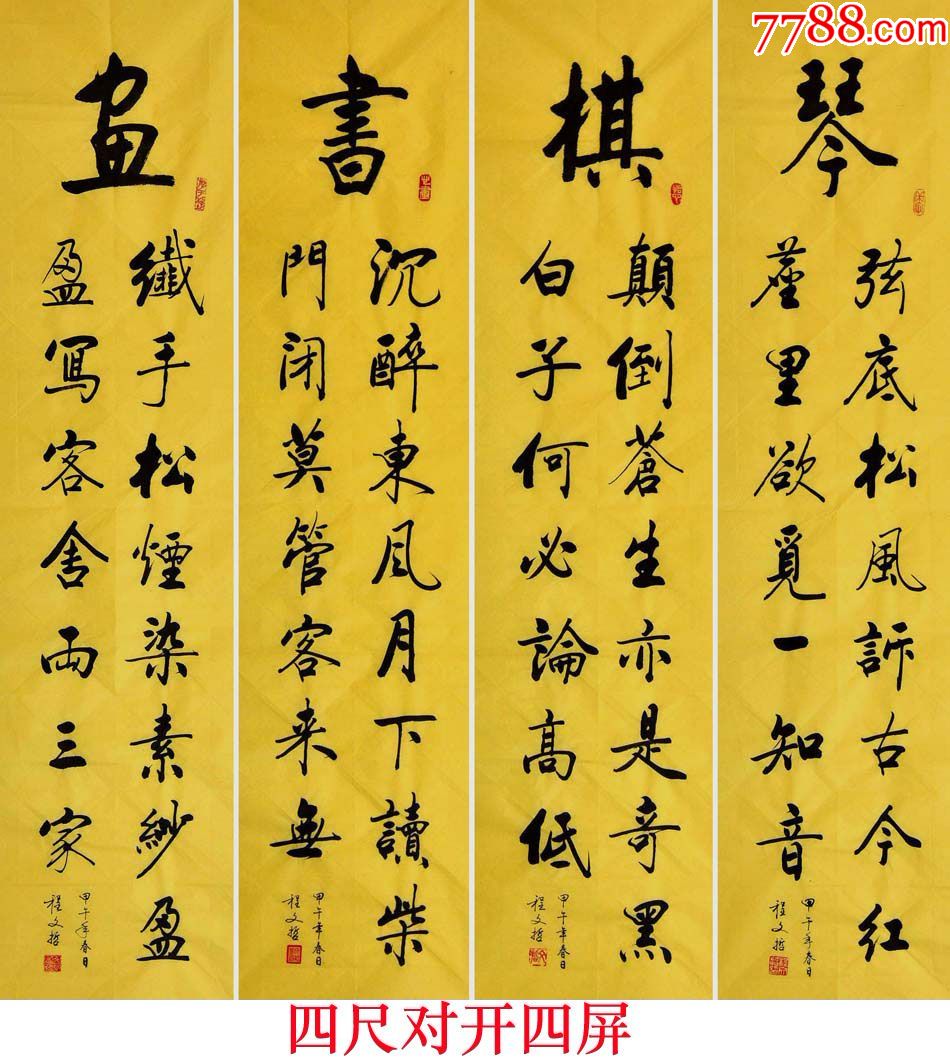 7788.com
琴
弦底松風訴古今红
塵里欲覓一知音
甲午年春日
程文哲
棋
顛倒蒼生亦是奇黑
白子何必論高低
甲午年春日
程文哲
書
沉醉東风月下讀柴
門闭莫管客来無
甲午年春日
程文哲
画
纖手松煙染素紗盈
盈寫客舍兩三家
甲午年春日
程文哲
四尺对开四屏